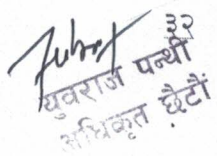 ३२
युवराज पन्थी
अधिकृत छैटौं